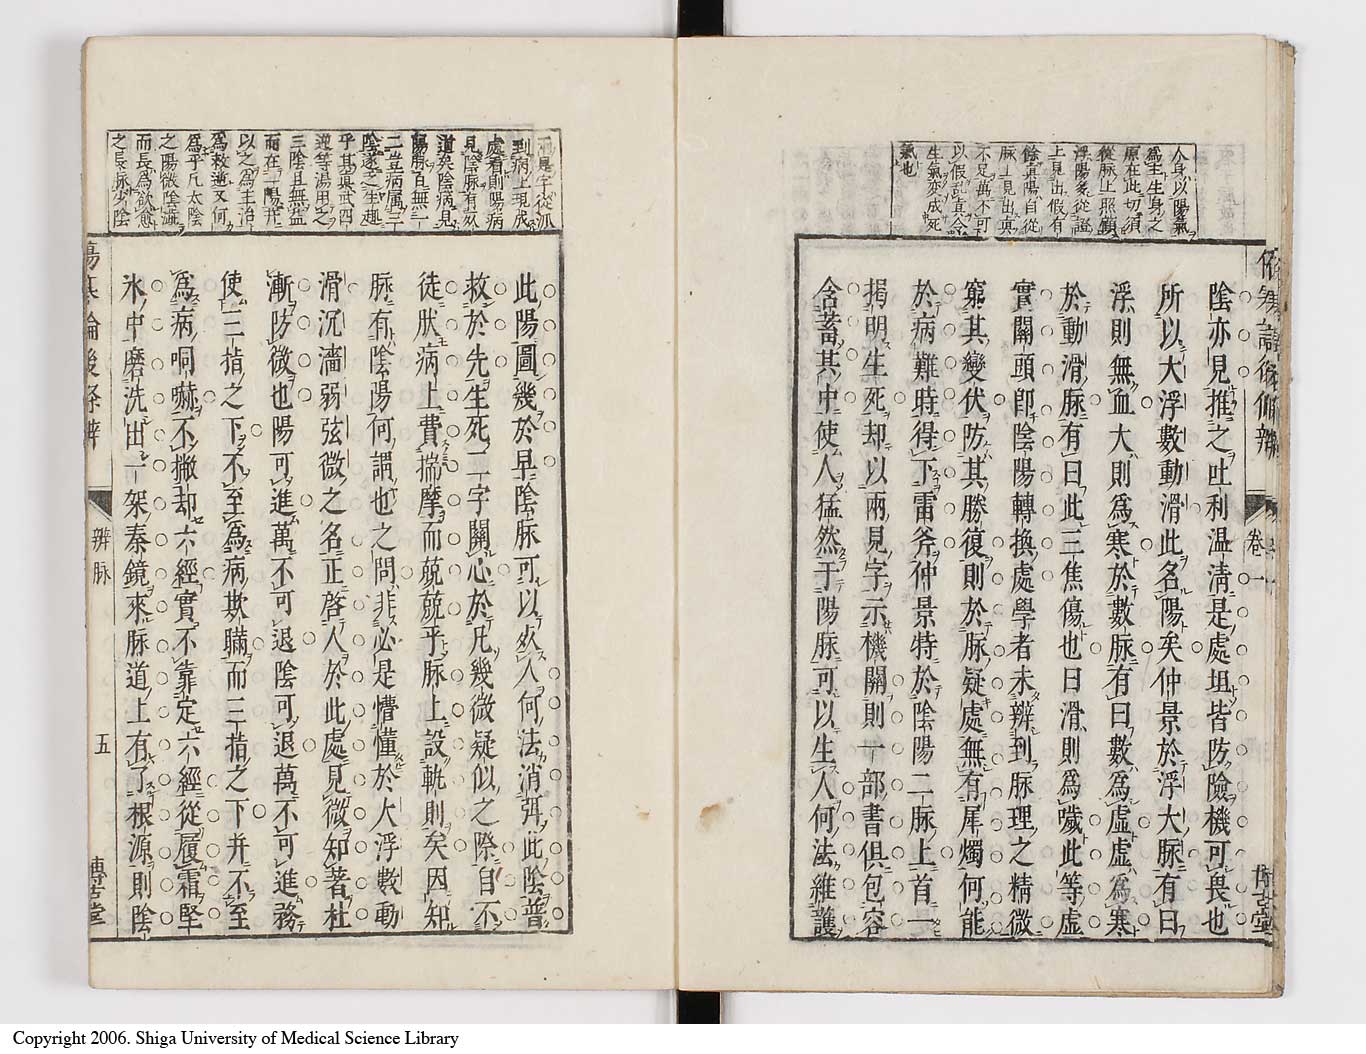 人身以陽氣
爲主生身之
原在此切須
從脉上照顧
浮陽家從證
上見出假有
餘眞陽自從
脉上見出眞
不足萬不可
以假認眞令
生氣亦成死
氣也
陰亦見推之吐利温清是處坦皆防險機可畏也
所以大浮數動滑此名陽矣仲景於浮大脉有曰
浮則無血大則爲寒於數脉有曰數爲虛虛爲寒
於動滑脉有曰此三焦傷也曰滑則爲噦此等虛
實關頭卽陰陽轉換處學者未辨到脉理之精微
窮其變伏防其勝復則於脉疑處無有犀燭何能
於病難時得下雷斧仲景特於陰陽二脉上首一
揭明生死却以兩見字示機關則一部書俱包容
含蓄其中使人猛然于陽脉可以生人何法維護
卷一
到病上現成
處看則陽病
見陰脉有矣
道矣陰病見
陽脉百無一
二豈病屬三
陰遂之生趣
乎其眞武四
逆等湯用之
三陰且無益
而在三陽井
以之爲主治
爲救逆又何
爲乎凡太陰
之陽微陰濇
而長爲欲愈
之長脉少陰
此陽圖幾於早陰脉可以殺人何法消弭此陰普
救於先生死二字關心於凡幾微疑似之際自不
徒狀病上費揣摩而兢兢乎脉上設軌則矣因知
脉有陰陽何謂也之問非必是懵懂於大浮數動
滑沉濇弱弦微之名正啓人於此處見微知著杜
漸防微也陽可進萬不可退陰可退萬不可進務
使三指之下不至爲病欺瞞而三指之下并不至
爲病哃嚇不撇却六經實不靠定六經從履霜堅
氷中磨洗出一架秦鏡來脉道上有了根源則陰
傷寒論後條辨
辨脉
五
博古堂
Copyright 2006. Shiga University of Medical Science Library